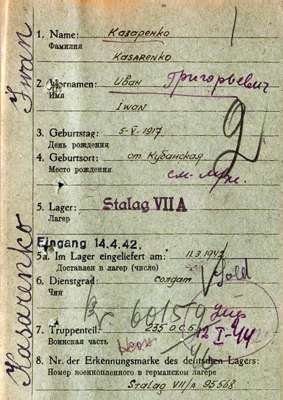 Kasarenko Iwan
1. Name: Казаренко
Фамилия
Kasarenko
2. Vornamen: Иван Григорьевич
Имя
Iwan
3. Geburtstag: 5-V-1917
День рождения
4. Geburtsort: ст Кубанская
Место рождения
5. Lager: Stalag VII A
Лагерь
Eingang 14.4.42.
5a. Im Lager eingeliefert am: 11.3.1942
Доставлен в лагерь (число)
6. Dienstgrad: солдат Sold
Чин
601519
7. Truppenteil: 235
Воинская часть
12 I-44
8. Nr. der Erkennungsmarke des deutschen Lagers:
Номер военнопленного в германском лагере
Stalag VII/A 95568